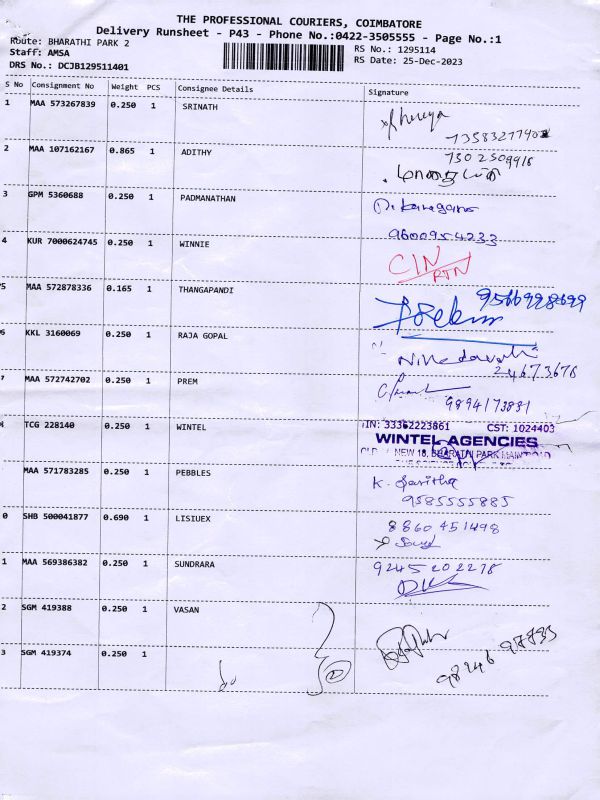 THE PROFESSIONAL COURIERS, COIMBATORE
Delivery Runsheet - P43 - Phone No.:0422-3505555 - Page No.:1
Route: BHARATHI PARK 2
RS No.: 1295114
Staff: AMSA
RS Date: 25-Dec-2023
DRS No.: DCJB129511401
S No Consignment No Weight PCS Consignee Details Signature
1 MAA 573267839 0.250 1 SRINATH
2 MAA 107162167 0.865 1 ADITHY
7502509916
3 GPM 5360688 0.250 1 PADMANATHAN
9600954233
4 KUR 7000624745 0.250 1 WINNIE
CIN
RTN
5 MAA 572878336 0.165 1 THANGAPANDI
6 KKL 3160069 0.250 1 RAJA GOPAL
24673676
7 MAA 572742702 0.250 1 PREM
9894173881
TCG 228140 0.250 1 WINTEL
TIN: 33362223861 CST: 1024403
WINTEL AGENCIES
NEW 18, BHARATHI PARK MAIN
MAA 571783285 0.250 1 PEBBLES
K. Saritha
9585555885
0 SHB 500041877 0.690 1 LISIUEX
8860451498
1 MAA 569386382 0.250 1 SUNDRARA
9245202278
2 SGM 419388 0.250 1 VASAN
3 SGM 419374 0.250 1
2
98246 97833